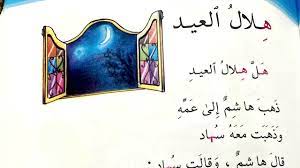 هِلالُ ٱلعيد
هَلَّ هِلالُ العيدِ
ذَهَبَ هاشِمٌ إِلىٰ عَمِّهِ
وَذَهَبَت مَعَهُ سُهاد
قالَ هاشِمٌ ، وَقالَت سُهاد :